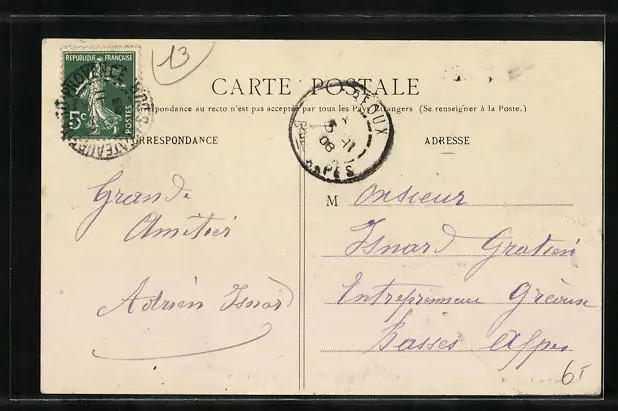 13
REPUBLIQUE FRANÇAISE
5c POSTES
CARTE POSTALE
respondance au recto n'est pas acceptée par tous les Pays Étrangers (Se renseigner à la Poste.)
RRESPONDANCE
ADRESSE
GREOUX
5 -11
08
ALPES
Grande
Amitier
Adrien Isnard
Monsieur
Isnard Gratien
Entrepreneur Gréoux
Basses Alpes
6